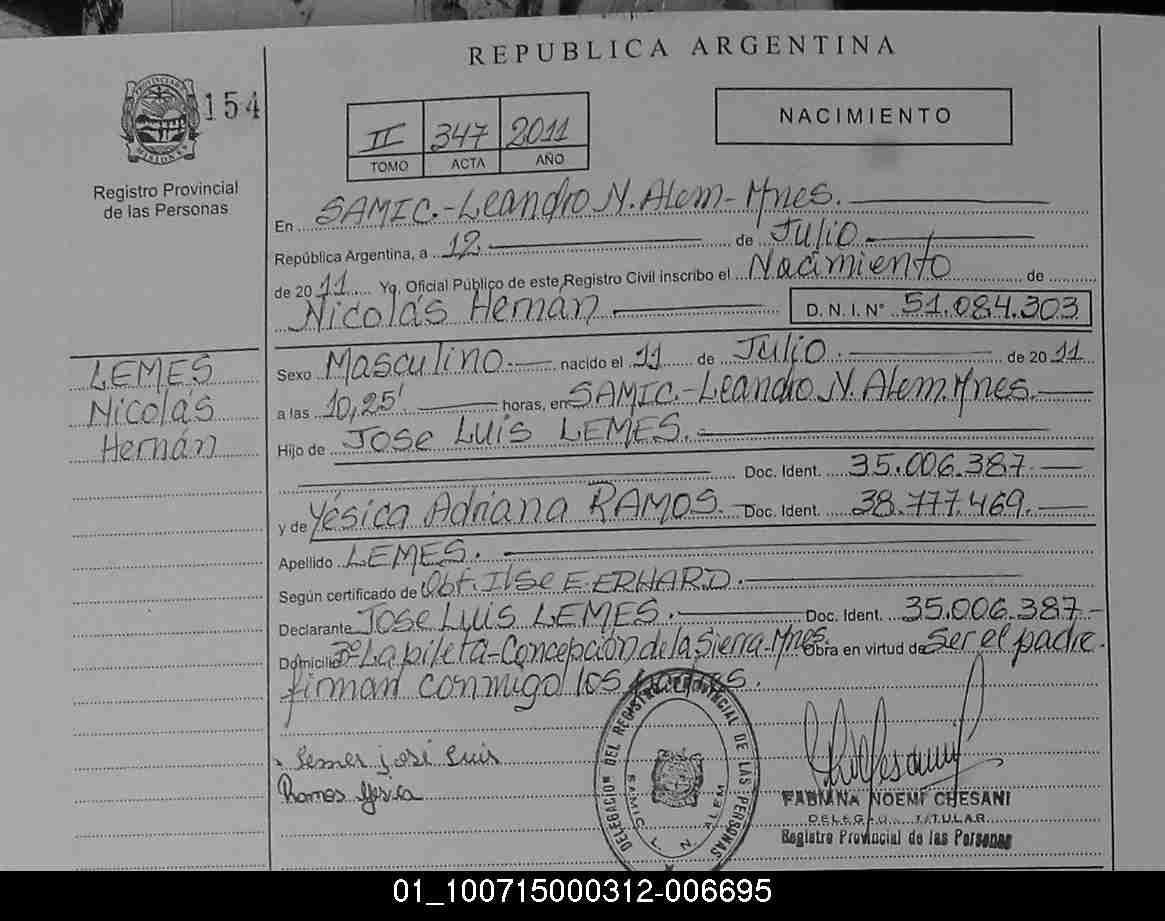 REPUBLICA ARGENTINA
PROVINCIA DE MISIONES
154
Registro Provincial
de las Personas
II 347 2011
TOMO ACTA AÑO
NACIMIENTO
En SAMIC.-Leandro N. Alem-Mnes.
República Argentina, a 12 de Julio
de 2011 Yo, Oficial Público de este Registro Civil inscribo el Nacimiento de
Nicolás Hernán D. N. I. N° 51.084.303
LEMES
Nicolás
Hernán
Sexo Masculino nacido el 11 de Julio de 2011
a las 10,25' horas, en SAMIC.-Leandro N. Alem.Mnes.
Hijo de Jose Luis LEMES.
Doc. Ident. 35.006.387.
y de Yésica Adriana RAMOS. Doc. Ident. 38.777.469.
Apellido LEMES.
Según certificado de Obt. Ilse E. ERHARD.
Declarante Jose Luis LEMES. Doc. Ident. 35.006.387-
Domicilio Bº La pileta-Concepción de la Sierra-Mnes. Obra en virtud de Ser el padre.
firman conmigo los
Lemes josé Luis
Ramos Yesica
DELEGACION DEL REGISTRO PROVINCIAL DE LAS PERSONAS
SAMIC L. N. ALEM
FABIANA NOEMI CHESANI
DELEGADA TITULAR
Registro Provincial de las Personas
01_100715000312-006695